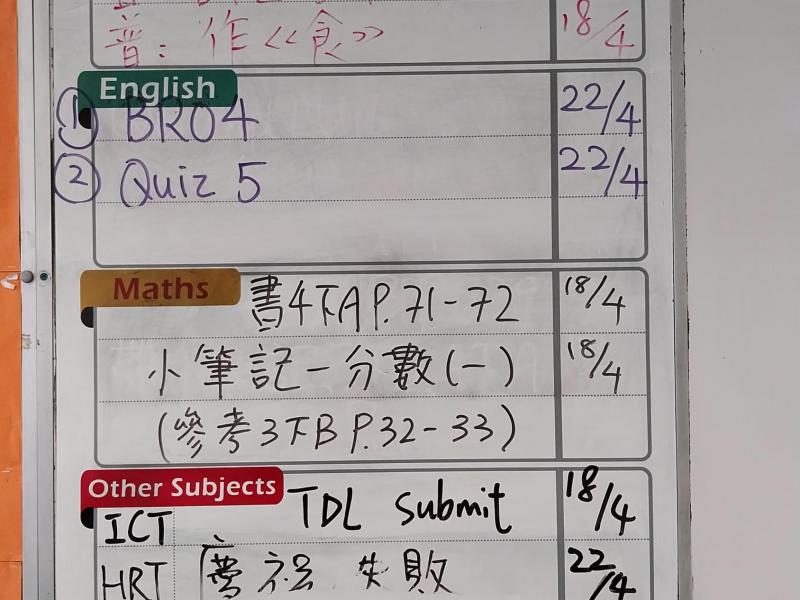 普：作《食》 18/4
English
① BR04 22/4
② Quiz 5 22/4
Maths
書4下A P.71-72 18/4
小筆記-分數(一) 18/4
(參考3下B P.32-33)
Other Subjects
ICT TDL submit 18/4
HRT 失敗 22/4